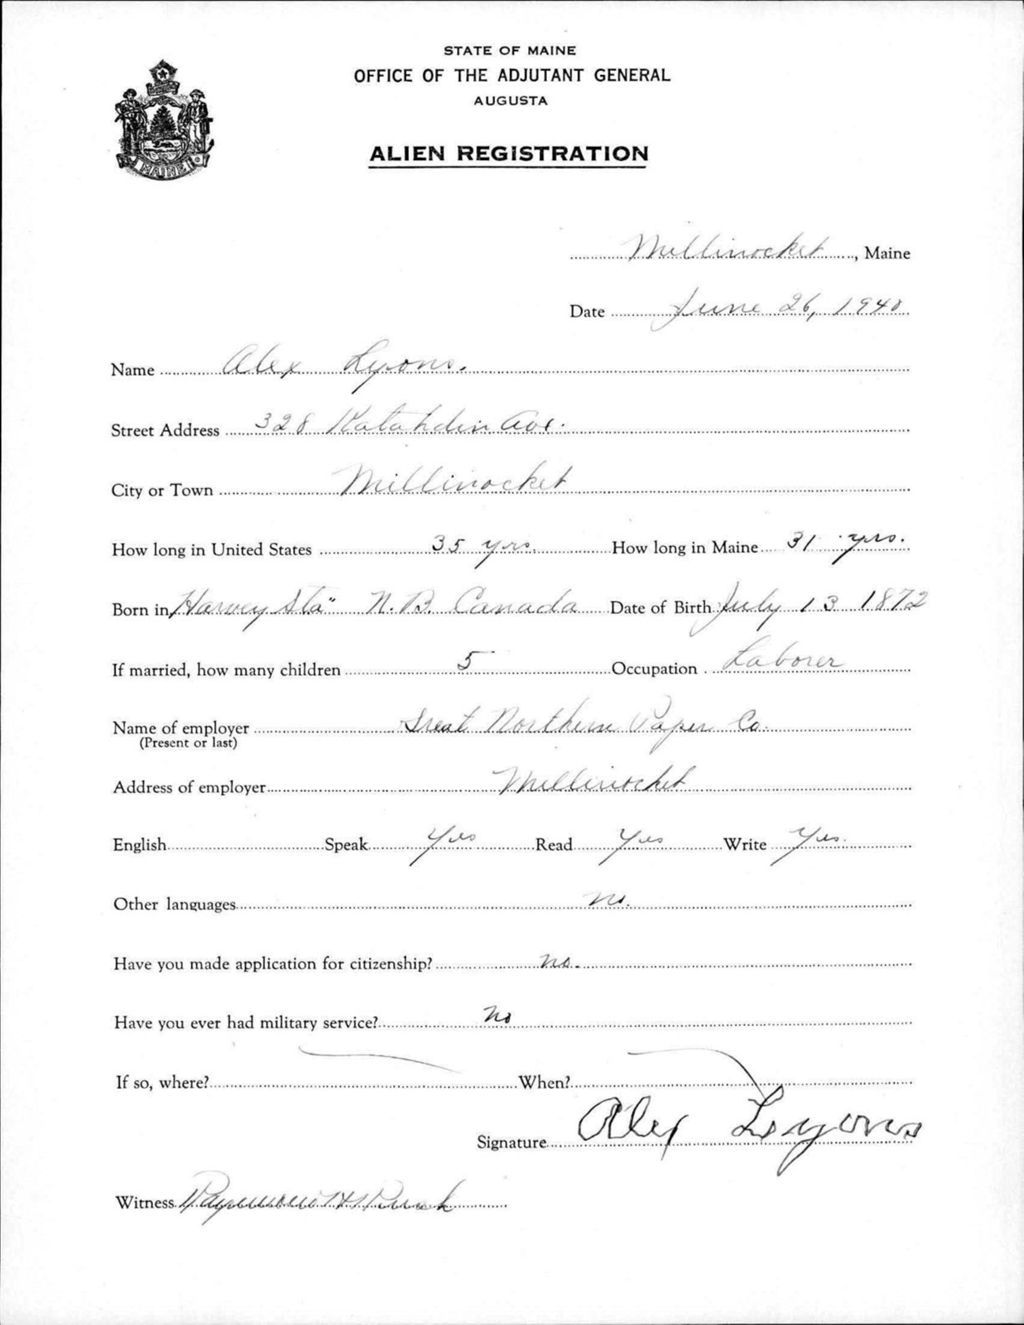 STATE OF MAINE
OFFICE OF THE ADJUTANT GENERAL
AUGUSTA
ALIEN REGISTRATION
MAINE
Millinocket, Maine
Date June 26, 1940
Name Alex Lyons.
Street Address 328 Katahdin Ave.
City or Town Millinocket
How long in United States 35 yrs. How long in Maine 31 yrs.
Born in Harvey Sta" N.B. Canada Date of Birth July 13 1872
If married, how many children 5 Occupation Laborer
Name of employer Great Northern Paper Co.
(Present or last)
Address of employer Millinocket
English Speak Yes Read Yes Write Yes.
Other languages no.
Have you made application for citizenship? no.
Have you ever had military service? no
If so, where? When?
Signature Alex Lyons
Witness Raymond H